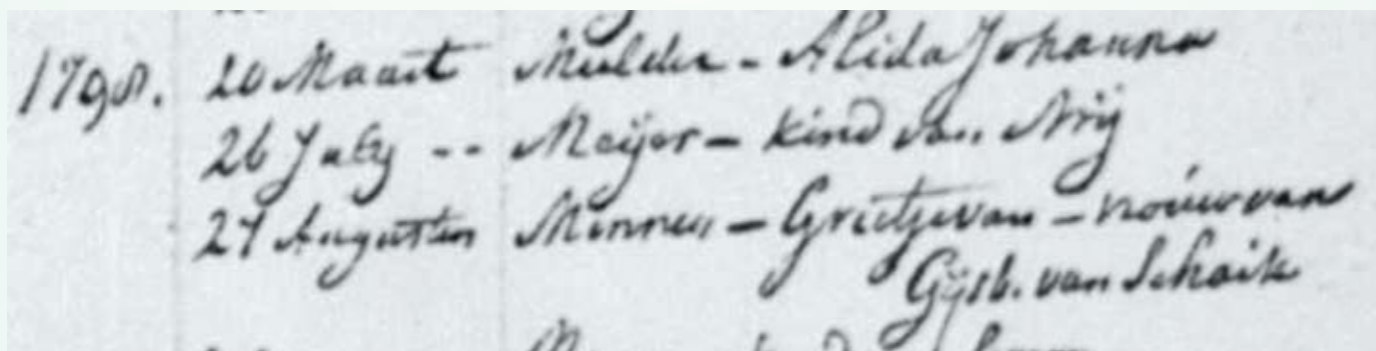 1798. 20 Maart Mulder - Alida Johanna
26 July -- Meijer - kind van Arij
27 Augustus Mennen - Grietje van - vrouw van
Gijsb. van Schaik